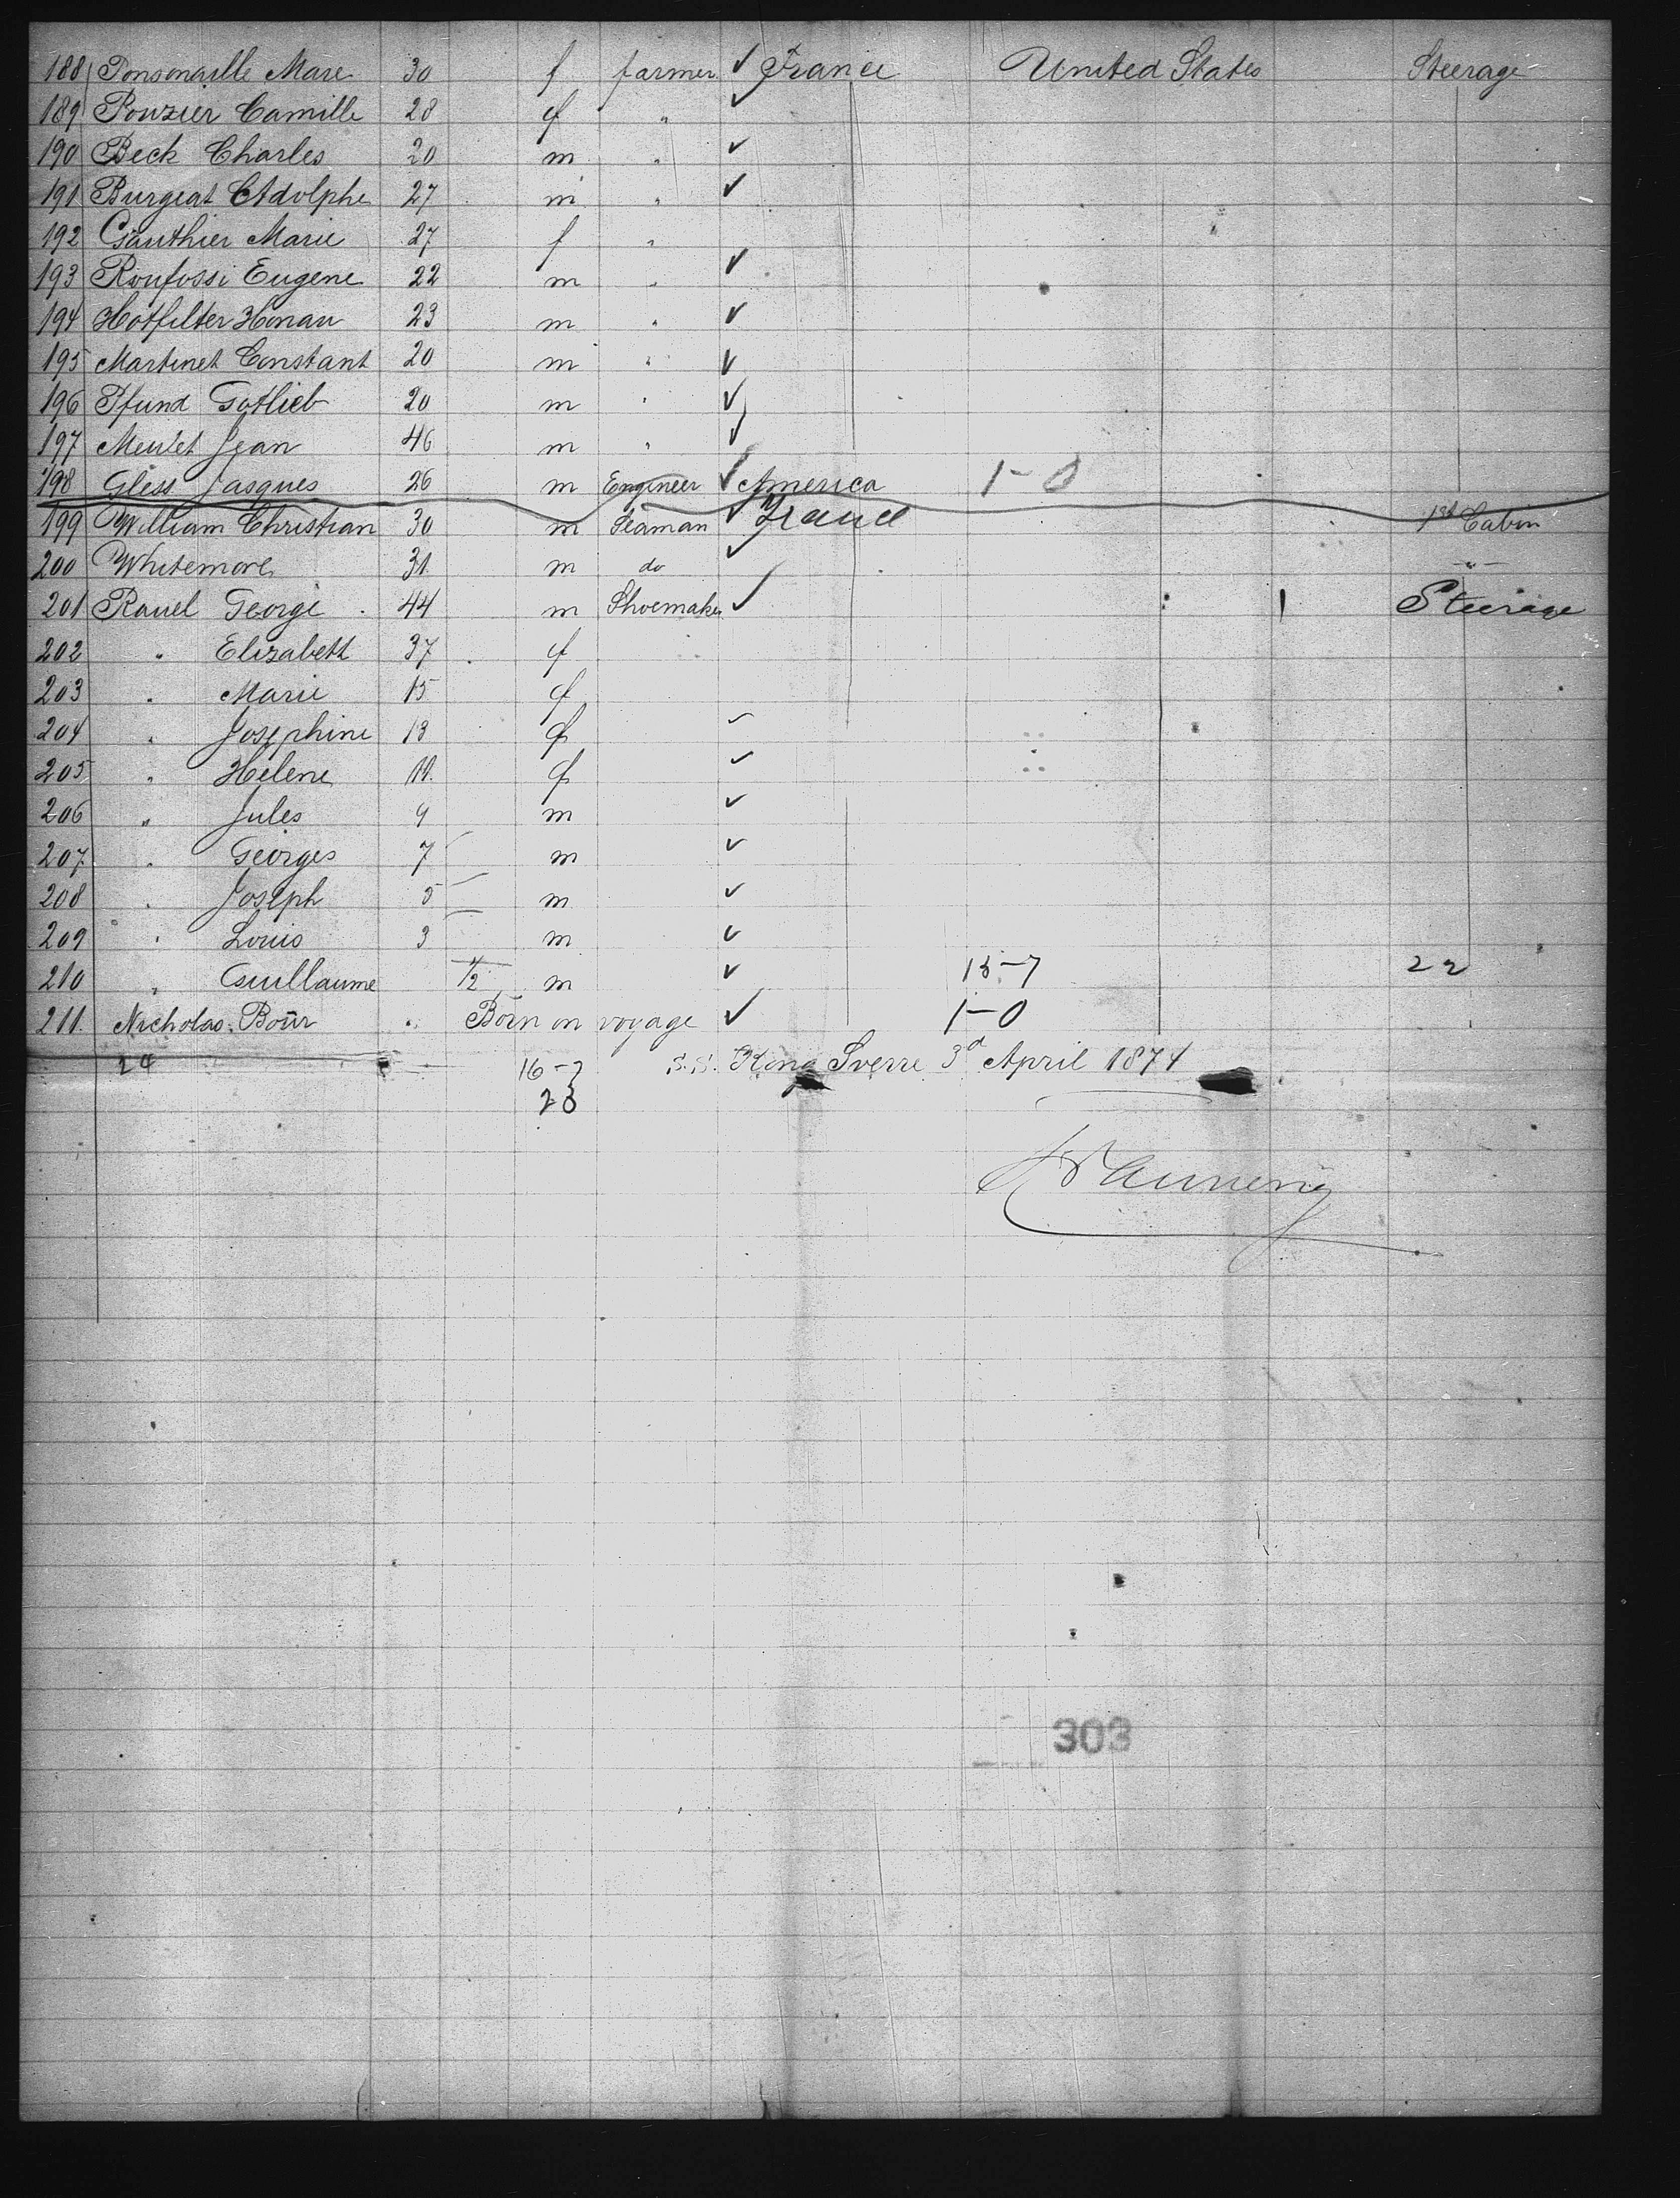 188 Ponsonaille Marie 30 f farmer ✓ France United States Steerage
189 Pouzier Camille 28 f " ✓
190 Beck Charles 20 m " ✓
191 Burgeat Adolphe 27 m " ✓
192 Gauthier Marie 27 f "
193 Roufossi Eugene 22 m " ✓
194 Hotfilter Honau 23 m " ✓
195 Martinet Constant 20 m " ✓
196 Pfund Gotlieb 20 m " ✓
197 Meulet Jean 46 m " ✓
198 Gliss Jasques 26 m Engineer ✓ America 1-0
199 William Christian 30 m Seaman ✓ France 1st Cabin
200 Whitemore 31 m do ✓ "
201 Rauel George 44 m Shoemaker ✓ 1 Steerage
202 " Elizabeth 37 f
203 " Marie 15 f
204 " Josephine 13 f ✓
205 " Helene 11 f ✓
206 " Jules 9 m ✓
207 " Georges 7 m ✓
208 " Joseph 5 m ✓
209 " Louis 3 m ✓
210 " Guillaume 1/2 m ✓ 15-7 22
211. Nicholas Boür " Born on voyage ✓ 1-0
24 16-7 S.S. King Sverre 3d April 1874
23
303